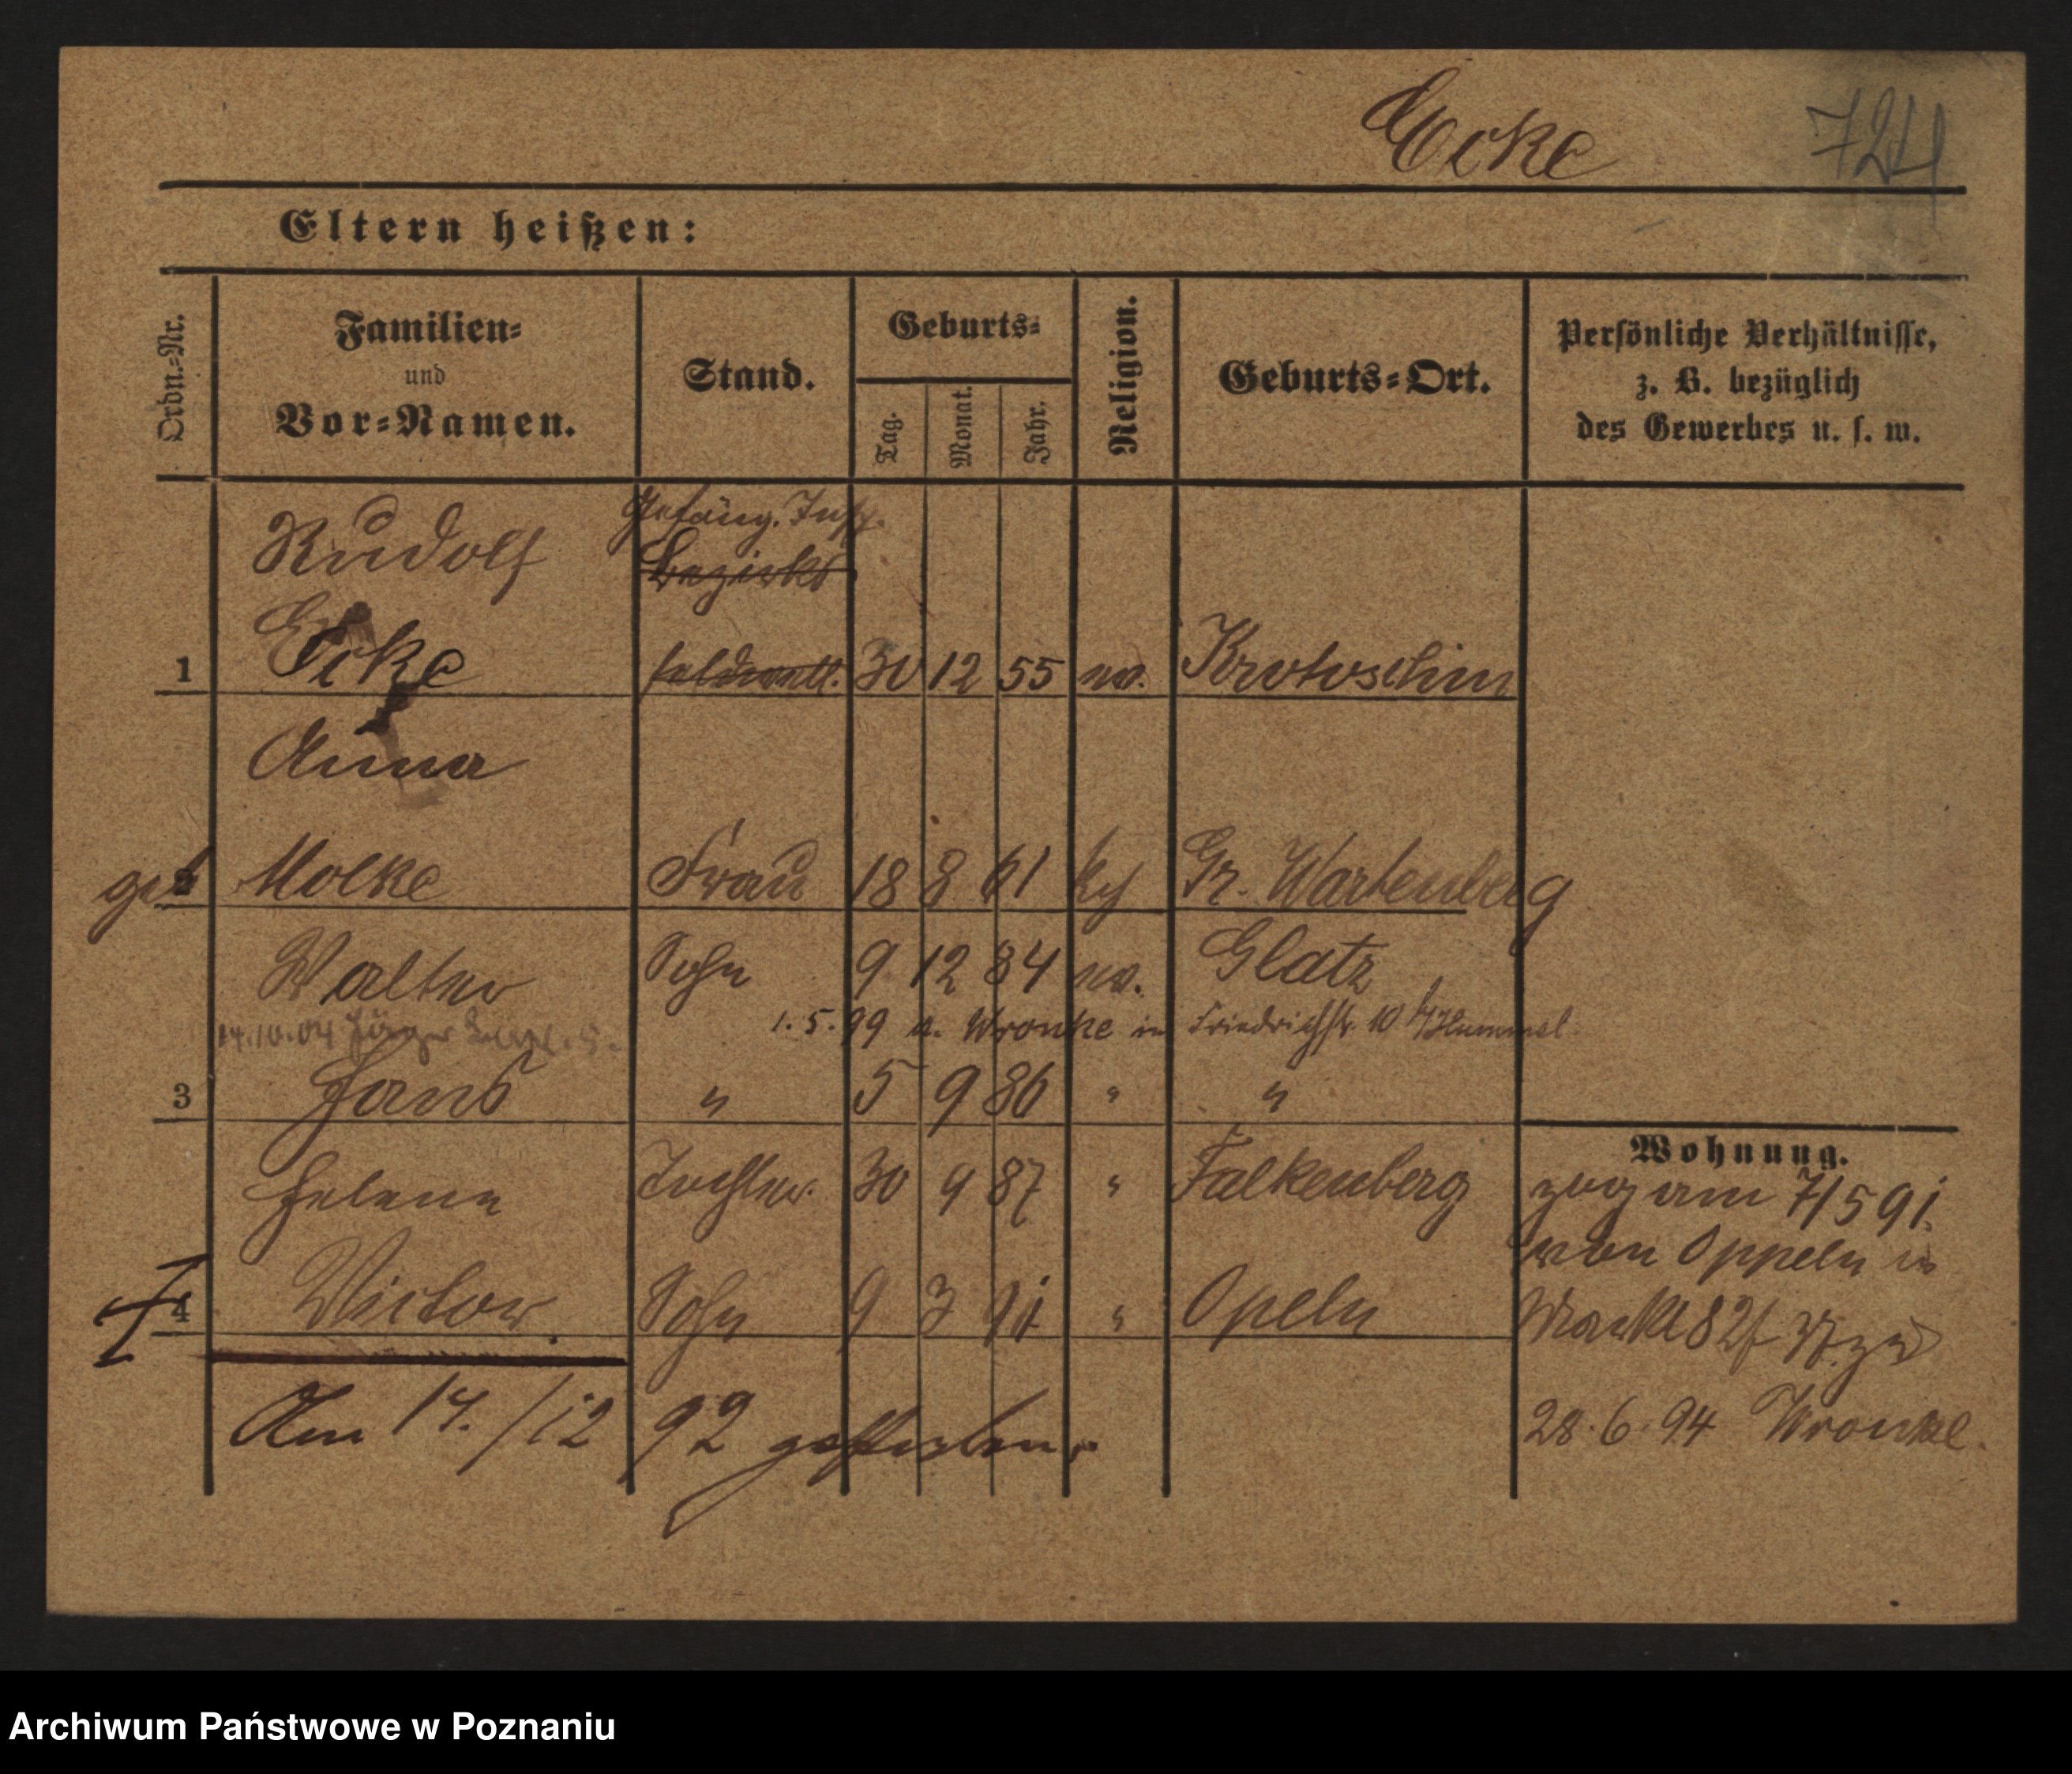 Ecke 724
Eltern heißen:
Ordn.-Nr.
Familien-
und
Vor-Namen.
Stand.
Geburts-
Tag.
Monat.
Jahr.
Religion.
Geburts-Ort.
Persönliche Verhältnisse,
z. B. bezüglich
des Gewerbes u. s. w.
Rudolf Gefäng. Insp.
Bezirks
1 Ecke feldwell. 30 12 55 ev. Krotoschin
Anna
geb 2 Molke Frau 18 8 61 Gr. Wartenberg
Walter Sohn 9 12 84 ev. Glatz
14.10.04 1. 5. 99 v. Wronke in Friedrichstr. 10 b/Hummel
3 Hans " 5 9 86 " "
Helene Tochter 30 9 87 " Falkenberg
4 Victor. Sohn 9 3 91 " Opeln
Am 14./12 92 gestorben.
Wohnung.
zog am 7/5 91
von Oppeln in
Markt 82
28.6.94 Wronke.
Archiwum Państwowe w Poznaniu